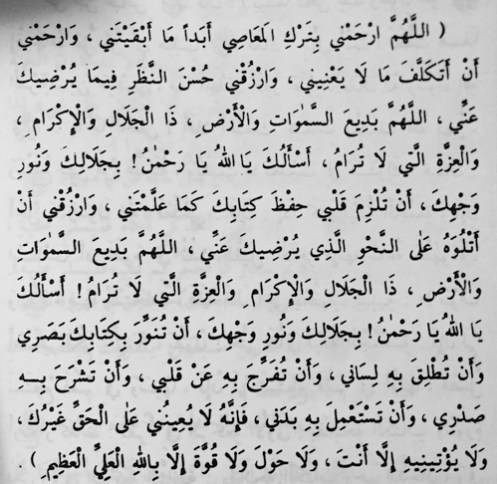 ( اللَّهُمَّ ارْحَمْني بِتَرْكِ المَعَاصِي أَبَداً مَا أَبْقَيْتَني ، وَارْحَمْني
أَنْ أَتَكَلَّفَ مَا لَا يَعْنِيني ، وَارْزُقْني حُسْنَ النَّظَرِ فِيمَا يُرْضِيكَ
عَنِّي ، اللَّهُمَّ بَدِيعَ السَّمٰوَاتِ وَالْأَرْضِ ، ذَا الْجَلَالِ وَالْإِكْرَامِ ،
وَالْعِزَّةِ الَّتي لَا تُرَامُ ، أَسْأَلُكَ يَا اللهُ يَا رَحْمٰنُ ! بِجَلَالِكَ وَنُورِ
وَجْهِكَ ، أَنْ تُلْزِمَ قَلْبي حِفْظَ كِتَابِكَ كَمَا عَلَّمْتَني ، وَارْزُقْني أَنْ
أَتْلُوَهُ عَلَى النَّحْوِ الَّذِي يُرْضِيكَ عَنِّي ، اللَّهُمَّ بَدِيعَ السَّمٰوَاتِ
وَالْأَرْضِ ، ذَا الْجَلَالِ وَالْإِكْرَامِ وَالْعِزَّةِ الَّتي لَا تُرَامُ ! أَسْأَلُكَ
يَا اللهُ يَا رَحْمٰنُ ! بِجَلَالِكَ وَنُورِ وَجْهِكَ ، أَنْ تُنَوِّرَ بِكِتَابِكَ بَصَرِي
وَأَنْ تُطْلِقَ بِهِ لِسَاني ، وَأَنْ تُفَرِّجَ بِهِ عَنْ قَلْبي ، وَأَنْ تَشْرَحَ بِهِ
صَدْرِي ، وَأَنْ تَسْتَعْمِلَ بِهِ بَدَني ، فَإِنَّهُ لَا يُعِينُني عَلَى الْحَقِّ غَيْرُكَ ،
وَلَا يُؤْتِينِيهِ إِلَّا أَنْتَ ، وَلَا حَوْلَ وَلَا قُوَّةَ إِلَّا بِاللهِ الْعَلِيِّ الْعَظِيمِ ) .